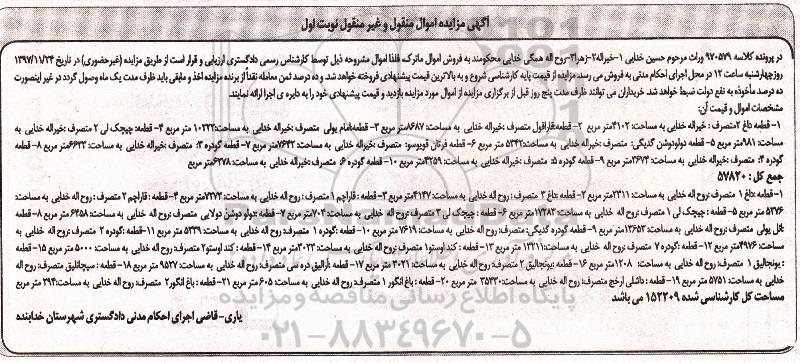 آگهی مزایده اموال منقول و غیر منقول نوبت اول
در پرونده کلاسه ۹۷۰۵۷۹ وراث مرحوم حسین خدایی ۱-خیراله۲-زهرا۳-روح اله همگی خدایی محکومند به فروش اموال ماترک، فلذا اموال مشروحه ذیل توسط کارشناس رسمی دادگستری ارزیابی و قرار است از طریق مزایده (غیرحضوری) در تاریخ ۱۳۹۷/۱۱/۲۴
روزچهارشنبه ساعت ۱۲ در محل اجرای احکام مدنی به فروش می رسد مزایده از قیمت پایه کارشناسی شروع و به بالاترین قیمت پیشنهادی فروخته خواهد شد. و ده درصد ثمن معامله نقداً از برنده مزایده اخذ و مابقی باید ظرف مدت یک ماه وصول گردد در غیر اینصورت
ده درصد مأخوذه به نفع دولت ضبط خواهد شد. خریداران می توانند ظرف مدت پنج روز قبل از برگزاری مزایده از اموال مورد مزایده بازدید و قیمت پیشنهادی خود را به دایره ی اجرا ارائه نمایند.
مشخصات اموال و قیمت آن:
۱- قطعه داغ ۲متصرف : خیراله خدایی به مساحت:۴۱۰۲متر مربع ۲- قطعه:قارافول متصرف :خیراله خدایی به مساحت:۸۶۸۷متر مربع ۳- قطعه:امام یولی متصرف :خیراله خدایی به مساحت:۱۰۲۳۳ متر مربع ۴- قطعه: چیچک لی ۲ متصرف :خیراله خدایی به
مساحت:۹۸۱متر مربع ۵- قطعه دولودوشن گدیگی: متصرف :خیراله خدایی به مساحت:۵۳۴۲متر مربع ۶- قطعه فرتان قویوسو: متصرف :خیراله خدایی به مساحت:۷۶۴۲متر مربع ۷- قطعه گوده ۳: متصرف :خیراله خدایی به مساحت:۶۶۲۳متر مربع ۸- قطعه
گوده ۴: متصرف :خیراله خدایی به مساحت:۳۶۷۴متر مربع ۹- قطعه گوده ۵: متصرف :خیراله خدایی به مساحت:۴۲۵۹متر مربع ۱۰- قطعه گوده ۶: متصرف :خیراله خدایی به مساحت:۶۲۷۸متر مربع
جمع کل : ۵۷۸۲۰
۱- قطعه:داغ ۱ متصرف : روح اله خدایی به مساحت:۲۳۱۱متر مربع ۲- قطعه :داغ ۳ متصرف : روح اله خدایی به مساحت:۴۱۴۷متر مربع ۳- قطعه : قاراچم ۱ متصرف : روح اله خدایی به مساحت:۷۲۷۳متر مربع ۴- قطعه : قاراچم ۲ متصرف : روح اله خدایی به مساحت:
۵۳۷۶ متر مربع ۵- قطعه : چیچک لی ۱ متصرف :روح اله خدایی به مساحت:۱۷۲۸۳متر مربع ۶- قطعه : چیچک لی ۳ متصرف:روح اله خدایی به مساحت:۷۰۴متر مربع ۷- قطعه :دولو دوشن دولایی متصرف :روح اله خدایی به مساحت:۶۴۵۸متر مربع ۸- قطعه
:تل یولی متصرف :روح اله خدایی به مساحت:۱۳۶۵۲متر مربع ۹- قطعه گودره گدیگی: متصرف:روح اله خدایی به مساحت:۷۶۱۹ متر مربع ۱۰- قطعه : گوده ۱ متصرف : روح اله خدایی به مساحت:۵۳۳۹متر مربع ۱۱- قطعه :گوده ۲ متصرف : روح اله خدایی به
مساحت:۴۹۷۶متر مربع ۱۲- قطعه :گودره ۷ متصرف : روح اله خدایی به مساحت:۱۳۲۱۱متر مربع ۱۳- قطعه : کند اوستو۱ متصرف: روح اله خدایی به مساحت:۳۰۳۳متر مربع ۱۴- قطعه : کند اوستو۲ متصرف : روح اله خدایی به مساحت: ۵۰۰۰ متر مربع ۱۵- قطعه
: یونجالیق ۱ متصرف: روح اله خدایی به مساحت: ۱۲۰۸ متر مربع ۱۶- قطعه :یونجالیق ۲ متصرف: روح اله خدایی به مساحت: ۳۰۲۱متر مربع ۱۷- قطعه :آرالیق دره سی متصرف : روح اله خدایی به مساحت:۹۵۲۷متر مربع ۱۸- قطعه : سیچانلیق متصرف: روح اله
خدایی به مساحت: ۵۷۵۱ متر مربع ۱۹- قطعه : داشلی ارخج متصرف: روح اله خدایی به مساحت: ۳۵۴۳۰ متر مربع ۲۰- قطعه : باغ انگور ۱ متصرف: روح اله خدایی به مساحت: ۶۰۵متر مربع ۲۱- قطعه : باغ انگور۲ متصرف: روح اله خدایی به مساحت: ۲۹۴متر مربع
مساحت کل کارشناسی شده ۱۵۲۲۰۹ می باشد
یاری- قاضی اجرای احکام مدنی دادگستری شهرستان خدابنده
پایگاه اطلاع رسانی مناقصه و مزایده
۰۲۱-۸۸۳۴۹۶۷۰-۵